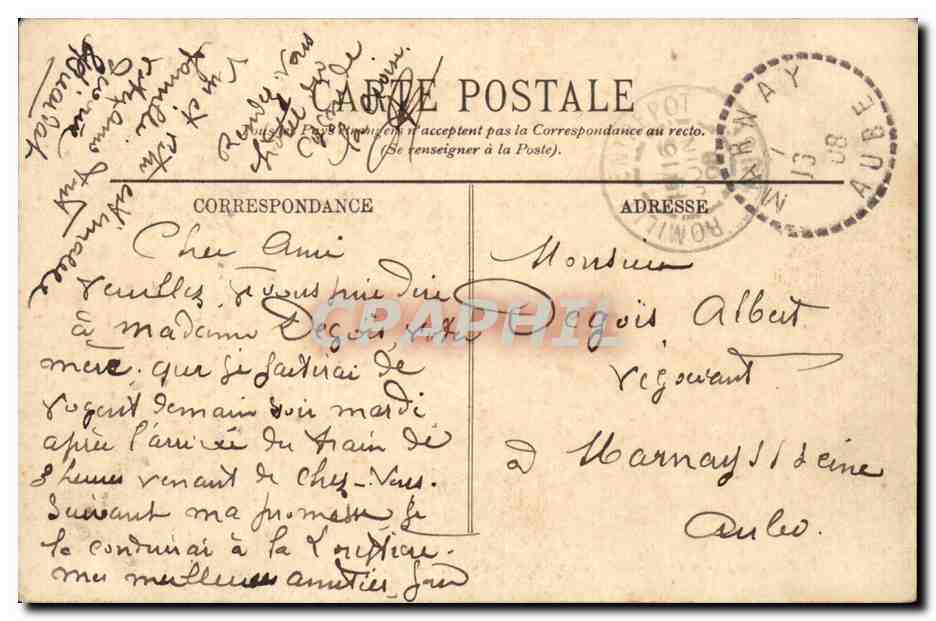 CARTE POSTALE
Tous les Pays étrangers n'acceptent pas la Correspondance au recto.
(Se renseigner à la Poste).
CORRESPONDANCE
Cher Ami
Veuillez, je vous prie dire
à Madame Degois votre
mère que je partirai de
Nogent demain soir mardi
après l'arrivée du train de
8 heures venant de chez-vous.
Suivant ma promesse je
la conduirai à la
mes meilleures amitiés pour
Rendez-vous
hotel du
Cygne de
la Croix
famille
ADRESSE
Monsieur
Degois Albert
Négociant
à Marnay s/ Seine
Aube.
MARNAY
13
08
AUBE
16
JUIN
08
ROMILLY
CPAPHIL